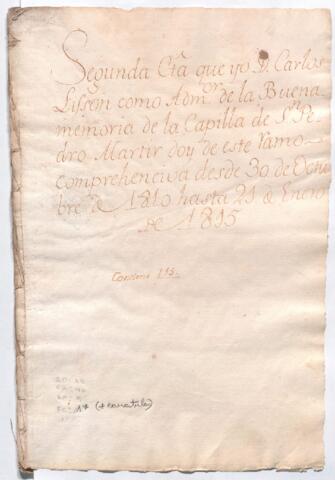 Segunda Cta que yo D. Carlos
Lissón como Admor de la Buena
memoria de la Capilla de Sn Pe
dro Martir doy de este ramo
comprehenciva desde 30 de Octu
bre de 1810 hasta 21 de Enero
de 1815
Contiene
1* (+ caratula)